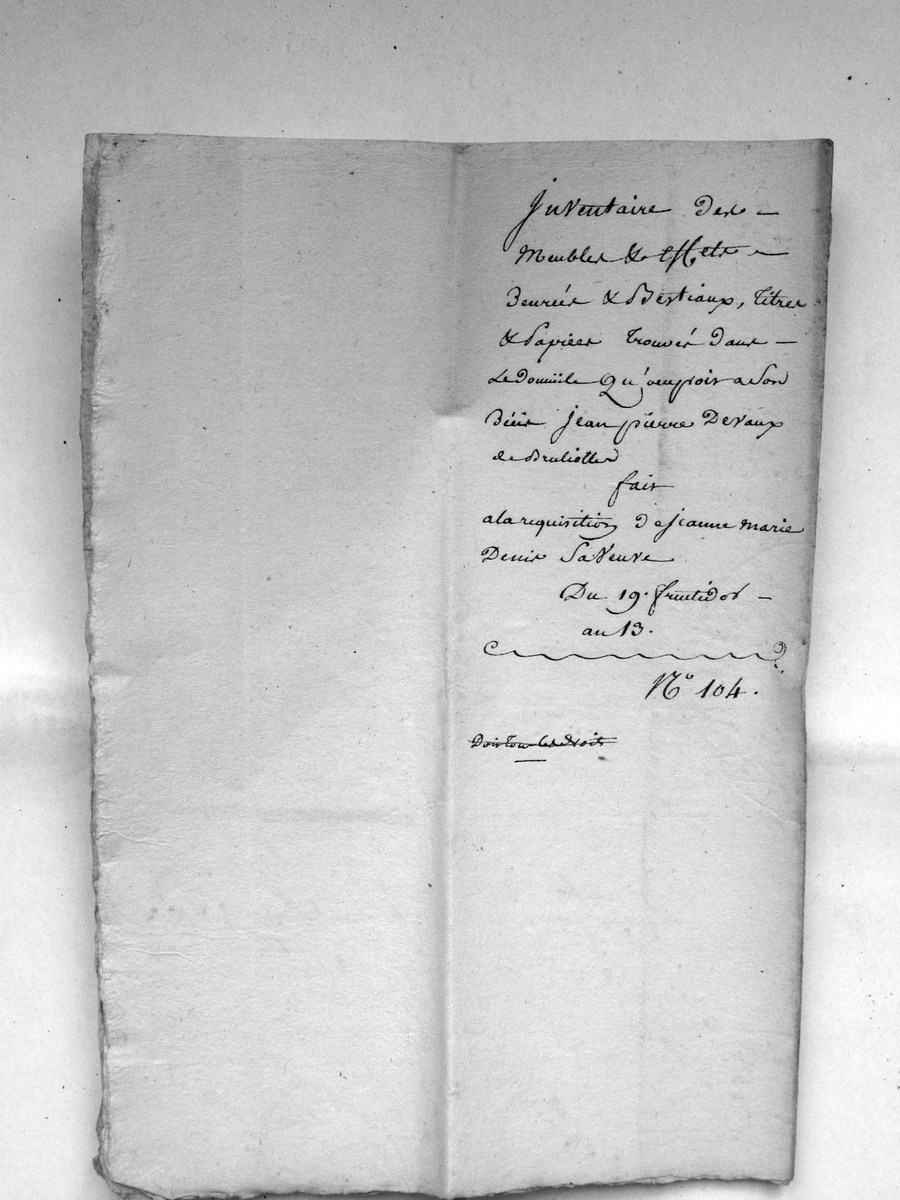 Inventaire Des –
Meubles & effets –
Denrées & Bestiaux, titres
& Papiers trouvés dans –
Le domicile Qu'occupoit a Son
Décès jean pierre Devaux
de
fait
a la requisition de jeanne marie
Denis Sa Veuve
Du 19. fructidor –
an 13.
N° 104.
Doit tous les droits